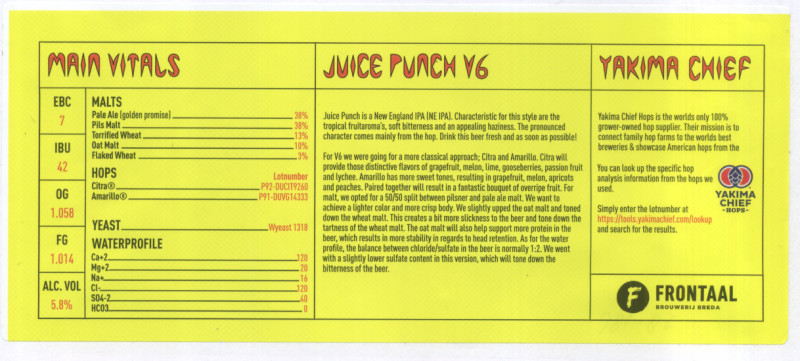 MAIN VITALS
EBC
7
IBU
42
OG
1.058
FG
1.014
ALC. VOL
5.8%
MALTS
Pale Ale (golden promise) 38%
Pils Malt 38%
Torrified Wheat 13%
Oat Malt 10%
Flaked Wheat 3%
HOPS Lotnumber
Citra® P92-DUCIT9260
Amarillo® P91-DUVG14333
YEAST Wyeast 1318
WATERPROFILE
Ca+2 120
Mg+2 20
Na+ 16
Cl- 120
SO4-2 40
HCO3 0
JUICE PUNCH V6
Juice Punch is a New England IPA (NE IPA). Characteristic for this style are the
tropical fruitaroma's, soft bitterness and an appealing haziness. The pronounced
character comes mainly from the hop. Drink this beer fresh and as soon as possible!
For V6 we were going for a more classical approach; Citra and Amarillo. Citra will
provide those distinctive flavors of grapefruit, melon, lime, gooseberries, passion fruit
and lychee. Amarillo has more sweet tones, resulting in grapefruit, melon, apricots
and peaches. Paired together will result in a fantastic bouquet of overripe fruit. For
malt, we opted for a 50/50 split between pilsner and pale ale malt. We want to
achieve a lighter color and more crisp body. We slightly upped the oat malt and toned
down the wheat malt. This creates a bit more slickness to the beer and tone down the
tartness of the wheat malt. The oat malt will also help support more protein in the
beer, which results in more stability in regards to head retention. As for the water
profile, the balance between chloride/sulfate in the beer is normally 1:2. We went
with a slightly lower sulfate content in this version, which will tone down the
bitterness of the beer.
YAKIMA CHIEF
Yakima Chief Hops is the worlds only 100%
grower-owned hop supplier. Their mission is to
connect family hop farms to the worlds best
breweries & showcase American hops from the
You can look up the specific hop
analysis information from the hops we
used.
Simply enter the lotnumber at
https://tools.yakimachief.com/lookup
and search for the results.
YAKIMA
CHIEF
-HOPS-
F FRONTAAL
BROUWERIJ BREDA